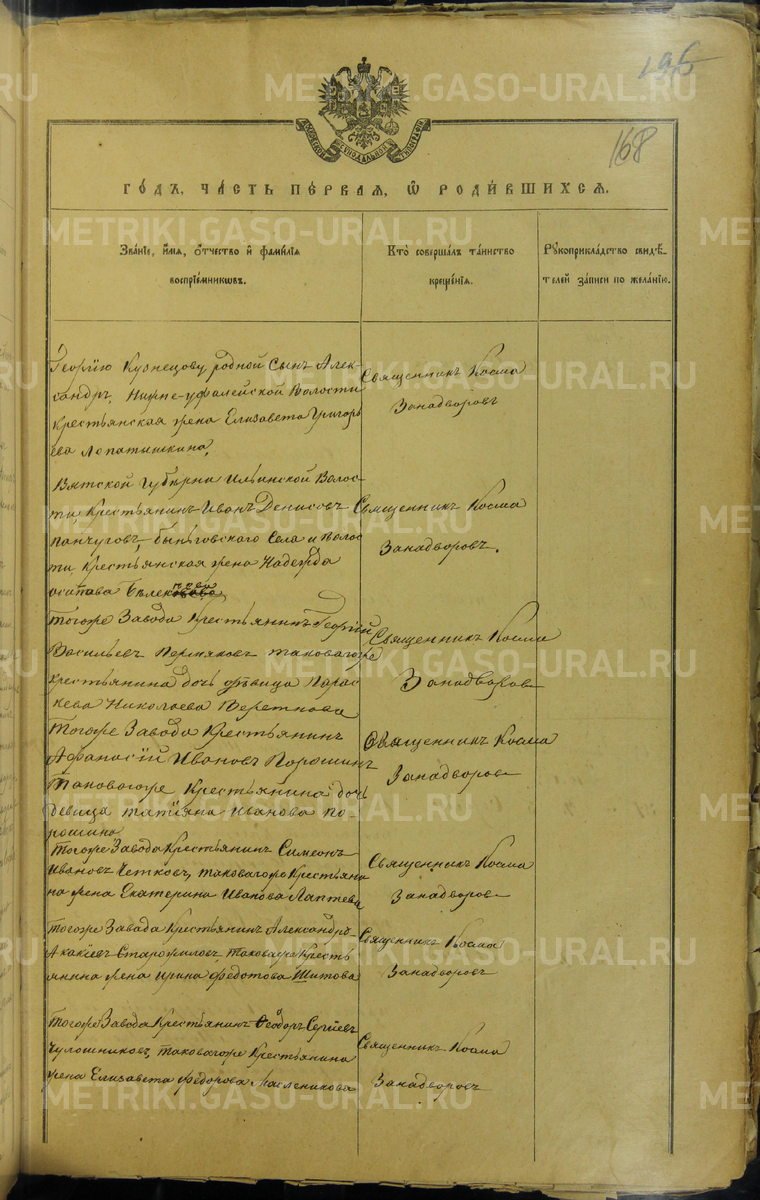 195
168
МОСКОВСКОЙ СѴНОДАЛЬНОЙ ТИПОГРАФІИ
ГОДЪ, ЧАСТЬ ПЕРВАЯ, Ѡ РОДИВШИХСЯ.
Званіе, имя, отчество и фамилія
воспріемниковъ.
Кто совершалъ таинство
крещенія.
Рукоприкладство свидѣ-
телей записи по желанію.
Георгію Кузнецову, родной Сынъ Алек-
сандръ, Нирне-уфалейской Волости
Крестьянская жена Елизавета Григорь
ева Лопатышкина,
Священникъ Косма
Занадворовъ
Вятской Губерни Ильинской Волос-
ти, Крестьянинъ Иванъ Денисовъ
Панчуговъ, быньговского Села и Волос
ти, Крестьянская жена Надежда
осипава
Священникъ Косма
Занадворовъ.
тогоже Завода Крестьянинъ Георгій
Васильевъ Пермяковъ таковагоже
крестьянина дочь дѣвица Парас
кева Николаева Веретнова
Священникъ Косма
Занадворовъ
тогоже Завода Крестьянинъ
Афанасій Ивановъ Порошинъ
Таковагоже Крестьянина дочь
девица татіяна Иванова По
рошина
Священникъ Косма
Занадворовъ
тогоже Завода Крестьянинъ Симеонъ
Ивановъ Четковъ, таковагоже Крестьяни
на жена Екатерина Иванова Лаптева
Священникъ Косма
Занадворовъ
тогоже Завода Крестьянинъ Александръ
Акакіевъ Старофиловъ таковагоже Кресть
янина жена Ирина Федотова Шитова
Священникъ Косма
Занадворовъ
тогоже Завода Крестьянинъ Феодоръ Сергіевъ
Чулошниковъ, таковагоже Крестьянина
жена Елизавета Федорова Масленикова
Священникъ Косма
Занадворовъ
METRIKI.GASO-URAL.RU